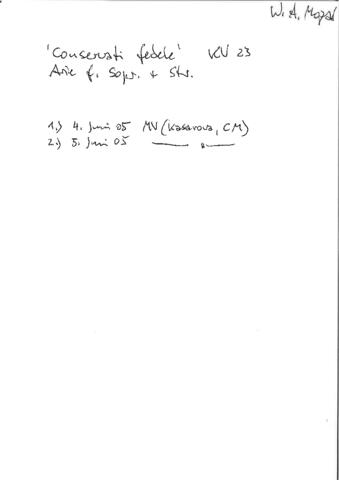 W. A. Mozart
'Conservati fedele' KV 23
Arie f. Sopr. + Str.
1.) 4. Juni 05 MV (Kasarova, CM)
2.) 5. Juni 05 — " —